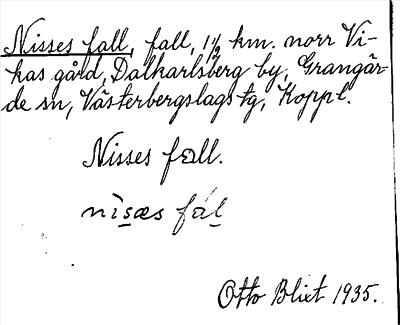 Nisses fall, fall, 1½ km. norr Vi-
kas gård, Dalkarlsberg by, Grangär-
de sn, Västerbergslags tg, Koppl.
Nisses fall.
nìs̲æs fál̲
Otto Blixt 1935.